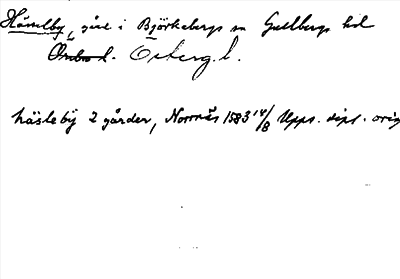 Hässelby, gård i Björkebergs sn Gullbergs hd
Örebro l. Österg. l.
häsleby 2 gårder, Norrnäs 1583 14/8 Upps. dipl. orig